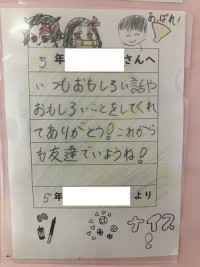 あっぱれ!
5年 さんへ
いつもおもしろい話や
おもしろいことをしてくれ
てありがとう!これから
も友達でいようね!
5年 より
ナイス!